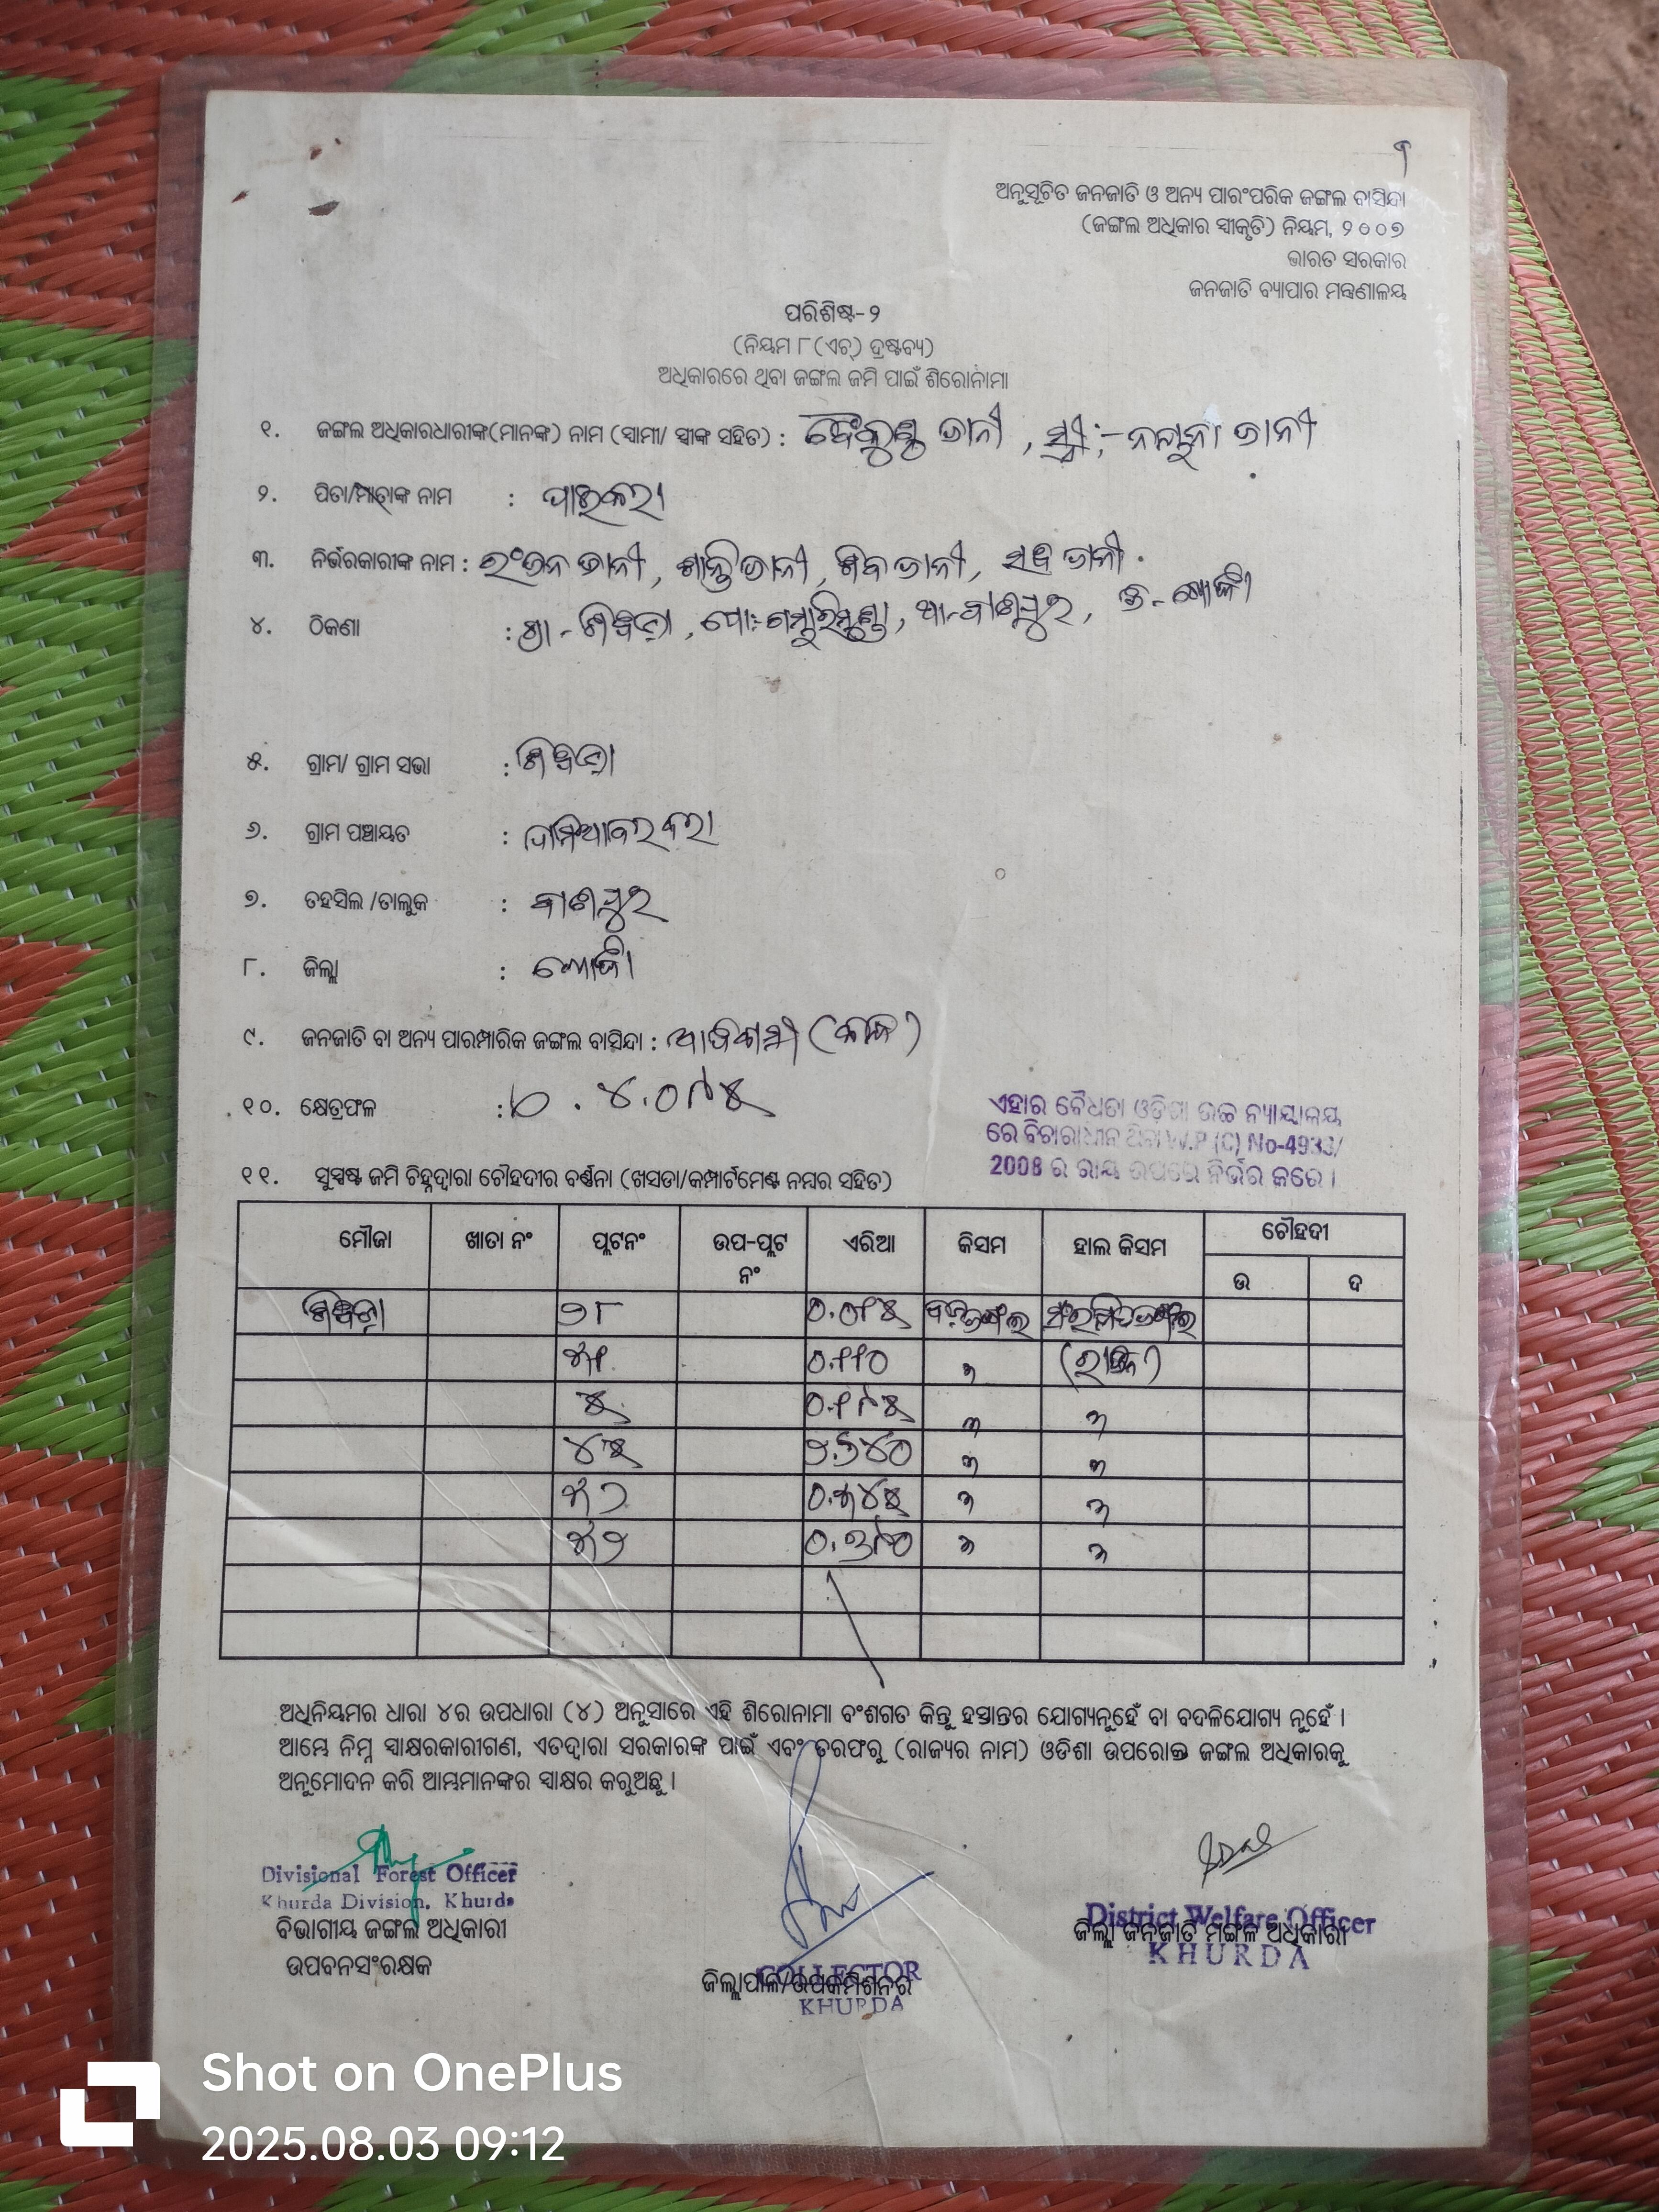 ୧
ଅନୁସୂଚିତ ଜନଜାତି ଓ ଅନ୍ୟ ପାରଂପରିକ ଜଙ୍ଗଲ ବାସିନ୍ଦା
(ଜଙ୍ଗଲ ଅଧିକାର ସ୍ୱୀକୃତି) ନିୟମ, ୨୦୦୭
ଭାରତ ସରକାର
ଜନଜାତି ବ୍ୟାପାର ମନ୍ତ୍ରଣାଳୟ
ପରିଶିଷ୍ଟ-୨
(ନିୟମ ୮(ଏଚ୍) ଦ୍ରଷ୍ଟବ୍ୟ)
ଅଧିକାରରେ ଥିବା ଜଙ୍ଗଲ ଜମି ପାଇଁ ଶିରୋନାମା
୧. ଜଙ୍ଗଲ ଅଧିକାରଧାରୀଙ୍କ(ମାନଙ୍କ) ନାମ (ସ୍ୱାମୀ/ ସ୍ତ୍ରୀଙ୍କ ସହିତ) : ବୈକୁଣ୍ଠ ଜାନୀ , ସ୍ତ୍ରୀ:- ଜାନୀ
୨. ପିତା/ମାତାଙ୍କ ନାମ :
୩. ନିର୍ଭରକାରୀଙ୍କ ନାମ : ରଂଜନ ଜାନୀ , ଶାନ୍ତି ଜାନୀ , ଶିବ ଜାନୀ , ଜାନୀ
୪. ଠିକଣା : ଗ୍ରା - , ପୋ:- , ଥା-ବାଣପୁର , ଜି - ଖୋର୍ଦ୍ଧା
୫. ଗ୍ରାମ/ ଗ୍ରାମ ସଭା :
୬. ଗ୍ରାମ ପଞ୍ଚାୟତ :
୭. ତହସିଲ /ତାଲୁକ : ବାଣପୁର
୮. ଜିଲ୍ଲା : ଖୋର୍ଦ୍ଧା
୯. ଜନଜାତି ବା ଅନ୍ୟ ପାରମ୍ପାରିକ ଜଙ୍ଗଲ ବାସିନ୍ଦା : ଆଦିବାସୀ (କନ୍ଧ)
୧୦. କ୍ଷେତ୍ରଫଳ : ୪.୦୮୫
ଏହାର ବୈଧତା ଓଡ଼ିଶା ଉଚ୍ଚ ନ୍ୟାୟାଳୟ
ରେ ବିଚାରାଧୀନ ଥିବା W.P (C) No-4933/
2008 ର ରାୟ ଉପରେ ନିର୍ଭର କରେ ।
୧୧. ସୁସ୍ପଷ୍ଟ ଜମି ଚିହ୍ନଦ୍ୱାରା ଚୌହଦୀର ବର୍ଣ୍ଣନା (ଖସଡା/କମ୍ପାର୍ଟମେଣ୍ଟ ନମ୍ବର ସହିତ)
ମୌଜା ଖାତା ନଂ ପ୍ଲଟନଂ ଉପ-ପ୍ଲଟ ନଂ ଏରିଆ କିସମ ହାଲ କିସମ ଚୌହଦୀ
ଉ ଦ
୨୮ ୦.୦୧୫
୫୧ ୦.୧୧୦
୫ ୦.୧୮୫
୪୫ ୨.୬୪୦
୫୭ ୦.୫୪୫
୫୨ ୦.୩୮୦
ଅଧିନିୟମର ଧାରା ୪ର ଉପଧାରା (୪) ଅନୁସାରେ ଏହି ଶିରୋନାମା ବଂଶଗତ କିନ୍ତୁ ହସ୍ତାନ୍ତର ଯୋଗ୍ୟନୁହେଁ ବା ବଦଳିଯୋଗ୍ୟ ନୁହେଁ ।
ଆମ୍ଭେ ନିମ୍ନ ସ୍ୱାକ୍ଷରକାରୀଗଣ, ଏତଦ୍ୱାରା ସରକାରଙ୍କ ପାଇଁ ଏବଂ ତରଫରୁ (ରାଜ୍ୟର ନାମ) ଓଡିଶା ଉପରୋକ୍ତ ଜଙ୍ଗଲ ଅଧିକାରକୁ
ଅନୁମୋଦନ କରି ଆମ୍ଭମାନଙ୍କର ସ୍ୱାକ୍ଷର କରୁଅଛୁ ।
Divisional Forest Officer
Khurda Division, Khurda
ବିଭାଗୀୟ ଜଙ୍ଗଲ ଅଧିକାରୀ
ଉପବନସଂରକ୍ଷକ
COLLECTOR
ଜିଲ୍ଲାପାଳ/ଉପକମିଶନର
KHURDA
District Welfare Officer
ଜିଲ୍ଲା ଜନଜାତି ମଙ୍ଗଳ ଅଧିକାରୀ
KHURDA
Shot on OnePlus
2025.08.03 09:12